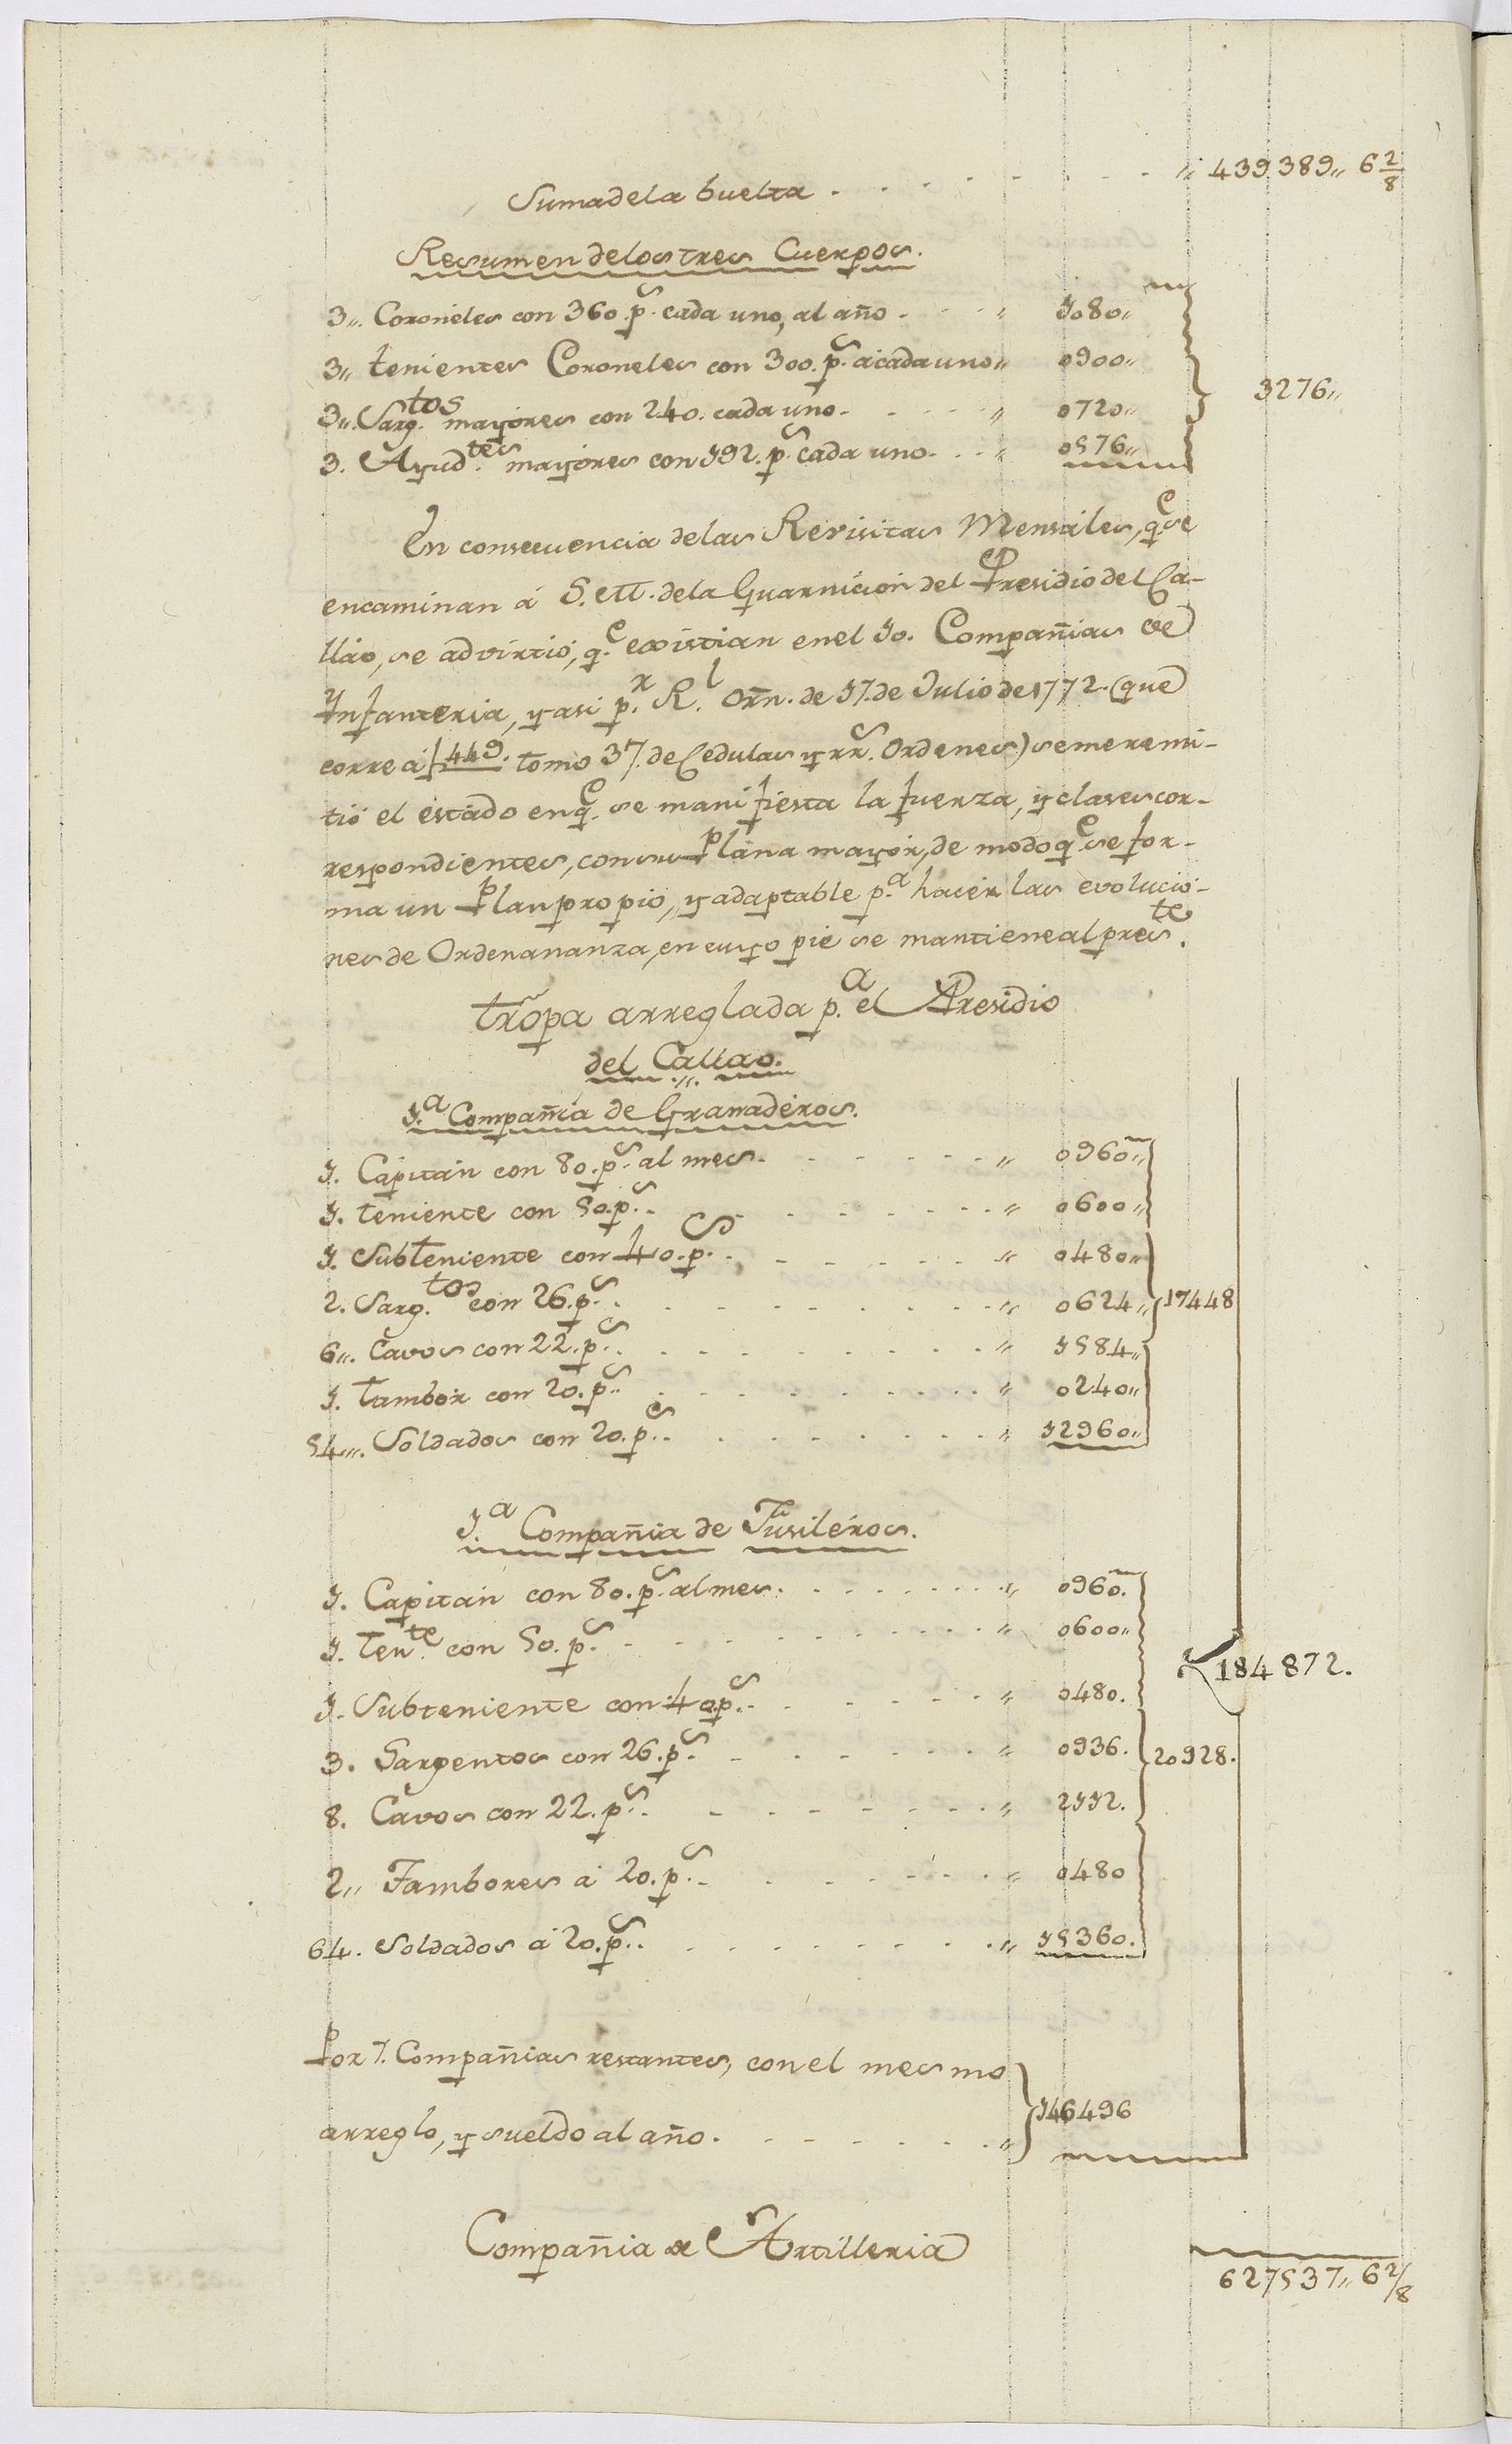 Suma de la buelta . . . . . . . . . . „ 439389„ 6 2/8
Resumen de los tres Cuerpos.
3„. Coroneles con 360. p.s cada uno, al año . . . „ 1080„
3„ tenientes Coroneles con 300. p.s a cada uno „ 0900„
3„. Sarg.tos mayores con 240. cada uno . . . . „ 0720„ } 3276„
3. Ayud.tes mayores con 192. p.s cada uno . . . „ 0576„
En consecuencia de las Revisitas Mensiles, q.e se
encaminan á S. M. de la Guarnición del Presidio del Ca-
llao, se advirtió, q.e existian en el 10. Compañias de
Ynfanteria, y asi p.r R.l Orñ. de 17. de Julio de 1772. (que
corre á f 449. tomo 37. de Cedulas y rr.s Ordenes) se me remi-
tió el estado en q.e se manifiesta la fuerza, y clases cor-
respondientes, con su Plana mayor, de modo q.e se for-
ma un Plan propio, y adaptable p.a hacer las evolucio-
nes de Ordenananza, en cuyo pie se mantiene al pres.te
trõpa arreglada p.a el Presidio
del Callao.
1.a Compañia de Granaderos.
1. Capitán con 80. p.s al mes . . . . . . „ 0960„
1. teniente con 50. p.s . . . . . . . . „ 0600„
1. Subteniente con 40. p.s . . . . . . . „ 0480„
2. Sarg.tos con 26. p.s . . . . . . . . . „ 0624„ } 17448
6„. Cavos con 22. p.s . . . . . . . . . „ 1584„
1. tambor con 20. p.s . . . . . . . . . „ 0240„
54„. Soldados con 20. p.s . . . . . . . . „ 12960„
1.a Compañia de Fusiléros.
1. Capitán con 80. p.s al mes . . . . . . . „ 0960.
1. ten.te con 50. p.s . . . . . . . . . . „ 0600„
184872.
1. Subteniente con 40 p.s . . . . . . . „ 0480.
3. Sargentos con 26. p.s . . . . . . . „ 0936. } 20928.
8. Cavos con 22. p.s . . . . . . . . „ 2112.
2„ Tambores a 20. p.s . . . . . . . . „ 0480
64. Soldados á 20. p.s . . . . . . . . . „ 15360.
Por 7. Compañias restantes, con el mesmo
arreglo, y sueldo al año . . . . . . . „ } 146496
Compañia de Artilleria
627537„ 6 2/8